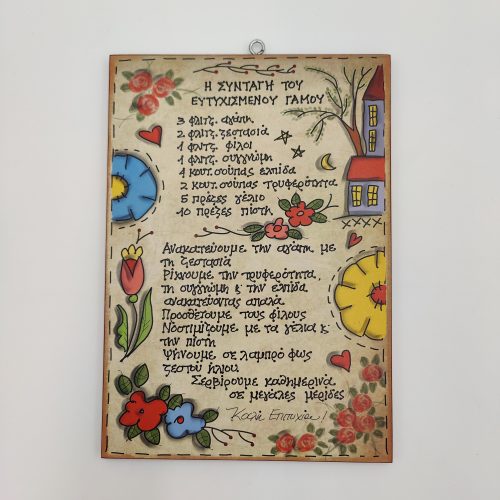 Η ΣΥΝΤΑΓΗ ΤΟΥ
ΕΥΤΥΧΙΣΜΕΝΟΥ ΓΑΜΟΥ
3 φλιτζ. αγάπη
2 φλιτζ. ζεστασιά
1 φλιτζ. φίλοι
1 φλιτζ. συγγνώμη
1 κουτ. σούπας ελπίδα
2 κουτ. σούπας τρυφερότητα
5 πρέζες γέλιο
10 πρέζες πίστη
Ανακατεύουμε την αγάπη με
τη ζεστασιά
Ρίχνουμε την τρυφερότητα,
τη συγγνώμη & την ελπίδα
ανακατεύοντας απαλά
Προσθέτουμε τους φίλους
Νοστιμίζουμε με τα γέλια &
την πίστη
Ψήνουμε σε λαμπρό φως
ζεστού ήλιου
Σερβίρουμε καθημερινά
σε μεγάλες μερίδες
Καλή Επιτυχία!